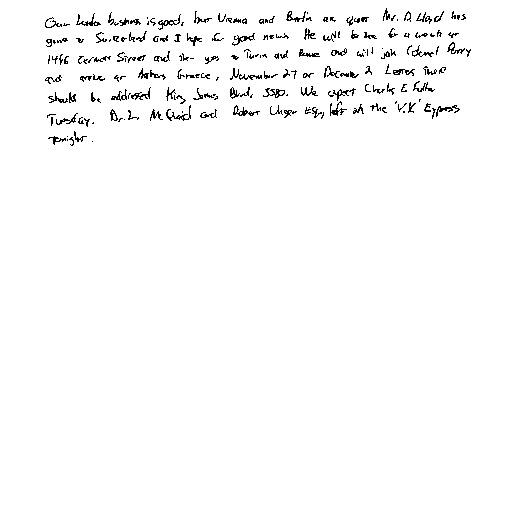 Our London business is good, but Vienna and Berlin are quiet. Mr. D. Lloyd has
gone to Switzerland and I hope for good news. He will be there for a week at
1496 Zermott Street and then goes to Turin and Rome and will join Colonel Parry
and arrive at Athens, Greece, November 27 or December 2. Letters there
should be addressed King James Blvd, 3580. We expect Charles E. Fuller
Tuesday. Dr. L. McQuaid and Robert Unger Esq, left on the 'V.X.' Express
tonight.